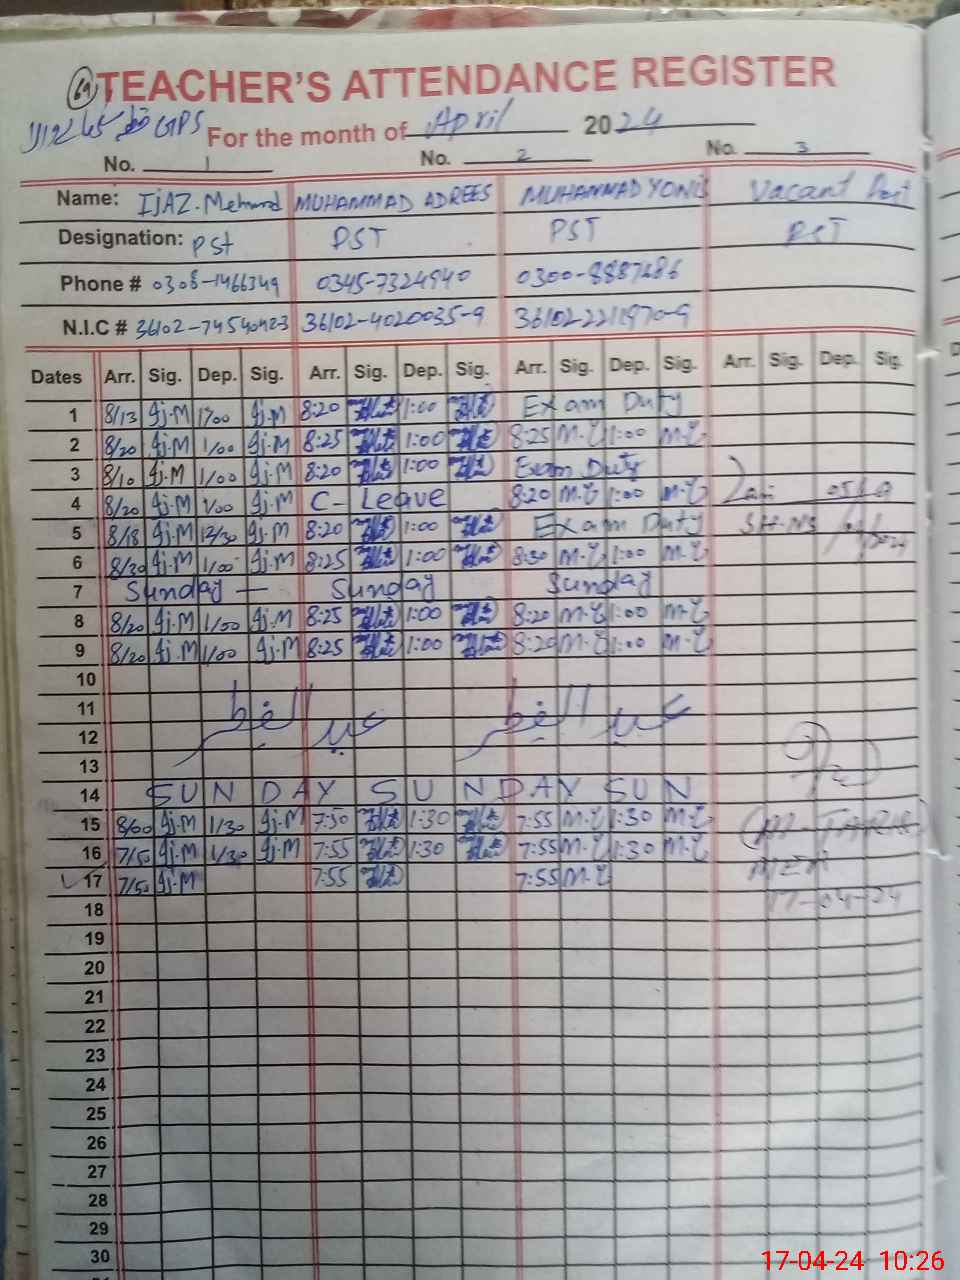 69 TEACHER'S ATTENDANCE REGISTER
GPS
For the month of April 2024
No. 1 No. 2 No. 3
Name: IJAZ. Mehmood MUHAMMAD ADREES MUHAMMAD YONIS Vacant Post
Designation: PST PST PST PST
Phone # 0308-1466349 0345-7324940 0300-8887286
N.I.C # 36102-74540423 36102-4020035-9 36102-2211970-9
Dates Arr. Sig. Dep. Sig. Arr. Sig. Dep. Sig. Arr. Sig. Dep. Sig. Arr. Sig. Dep. Sig.
1 8/13 Ij.M 1/00 Ij.M 8:20 1:00 Exam Duty
2 8/20 Ij.M 1/00 Ij.M 8:25 1:00 8:25 M.Y 1:00 M.Y
3 8/10 Ij.M 1/00 Ij.M 8:20 1:00 Exam Duty
4 8/20 Ij.M 1/00 Ij.M C- Leave 8:20 M.Y 1:00 M.Y
5 8/18 Ij.M 12/30 Ij.M 8:20 1:00 Exam Duty
6 8/20 Ij.M 1/00 Ij.M 8:25 1:00 8:30 M.Y 1:00 M.Y
7 Sunday — Sunday Sunday
8 8/20 Ij.M 1/00 Ij.M 8:25 1:00 8:20 M.Y 1:00 M.Y
9 8/20 Ij.M 1/00 Ij.M 8:25 1:00 8:20 M.Y 1:00 M.Y
10
11
عید الفطر عید الفطر
12
13
14 SUNDAY SUNDAY SUN
15 8/00 Ij.M 1/30 Ij.M 7:50 1:30 7:55 M.Y 1:30 M.Y
16 7/50 Ij.M 1/30 Ij.M 7:55 1:30 7:55 M.Y 1:30 M.Y
17 7/50 Ij.M 7:55 7:55 M.Y
17-04-24
18
19
20
21
22
23
24
25
26
27
28
29
30
17-04-24 10:26